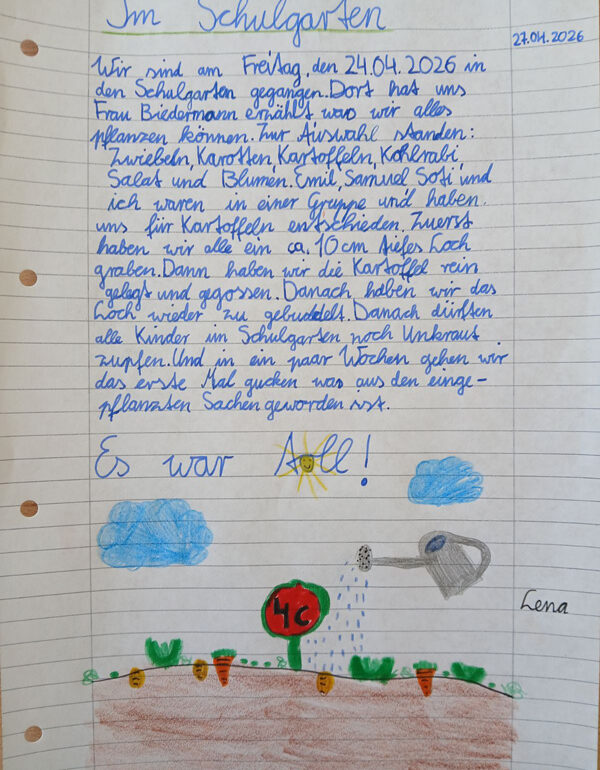 Im Schulgarten
27.04.2026
Wir sind am Freitag, den 24.04.2026 in
den Schulgarten gegangen. Dort hat uns
Frau Biedermann erzählt was wir alles
pflanzen können. Zur Auswahl standen:
Zwiebeln, Karotten, Kartoffeln, Kohlrabi,
Salat und Blumen. Emil, Samuel, Sofi und
ich waren in einer Gruppe und haben
uns für Kartoffeln entschieden. Zuerst
haben wir alle ein ca. 10 cm tiefes Loch
graben. Dann haben wir die Kartoffel rein
gelegt und gegossen. Danach haben wir das
Loch wieder zu gebuddelt. Danach dürften
alle Kinder im Schulgarten noch Unkraut
zupfen. Und in ein paar Wochen gehen wir
das erste Mal gucken was aus den einge-
pflanzten Sachen geworden ist.
Es war toll!
4c
Lena